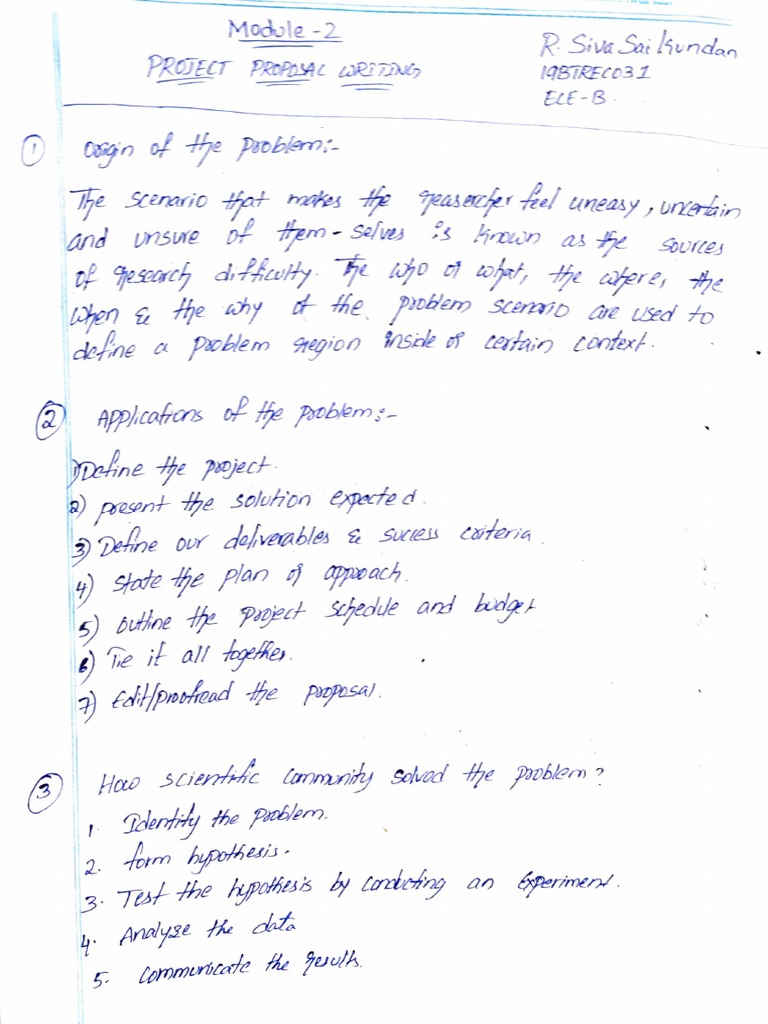 Module-2
PROJECT PROPOSAL WRITING
R. Siva Sai Kundan
19BTREC031
ECE-B.
① Origin of the problem:-
The scenario that makes the reasercher feel uneasy, uncertain
and unsure of them-selves is known as the sources
of research difficulty. The who or what, the where, the
when & the why of the problem scenario are used to
define a problem region inside of certain context.
② Applications of the problem:-
1) Define the project.
2) present the solution expected.
3) Define our deliverables & success criteria.
4) State the plan of approach.
5) Outline the project schedule and budget
6) Tie it all together.
7) Edit/proofread the proposal.
③ How scientific community solved the problem?
1. Identify the problem.
2. form hypothesis.
3. Test the hypothesis by conducting an Experiment.
4. Analyze the data
5. Communicate the results.